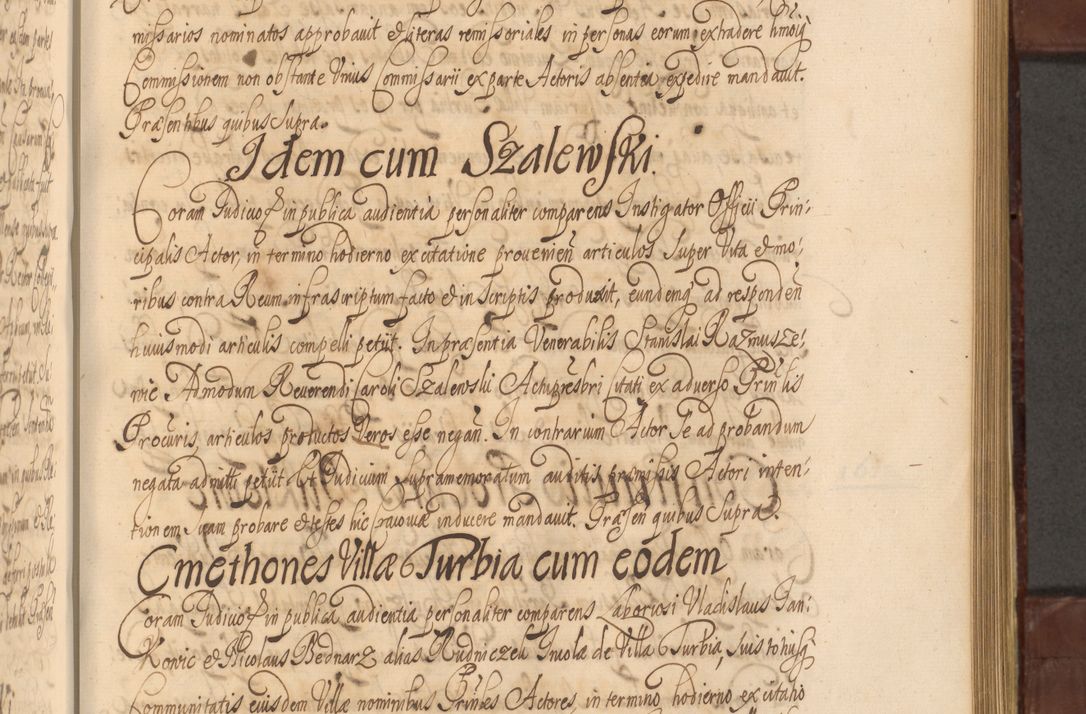 missarios nominatos approbavit et literas remissoriales in personas eorum extradere hmōi
Commissionem non obstante Unius Commissarii ex parte Actoris absentia expedire mandavit.
Præsentibus quibus Supra.
Idem cum Szalewski.
Coram Judicio et in publica audientia personaliter comparens Instigator Officii Prin-
cipalis Actor, in termino hodierno ex citatione provenien̄ articulos Super Vita et mo-
ribus contra Reum infrascriptum facto et in Scriptis produxit, eundemq ad responden̄
huiusmodi articulis compelli petiit. In præsentia Venerabilis Stanislai Razmusze-
wic Admodum Reverendi Caroli Szalewski Archipresbri citati ex adverso Prin̄lis
Procuris, articulos productos Veros esse negan̄. In contrarium Actor Se ad probandum
negata admitti petiit Et Judicium supramemoratum auditis præmissis Actori inten-
tionem suam probare et testes hic Cracoviæ inducere mandavit. Præsen̄ quibus Supra.
Cmethones Villæ Turbia cum eodem
Coram Judicio et in publica audientia personaliter comparens Laboriosi Vladislaus Jan-
Kowic et Nicolaus Bednarz alias Rudniczek Incolæ de Villa Turbia, suis totiusq
Communitatis eiusdem Villæ nominibus Prin̄les Actores, in termino hodierno ex citatio